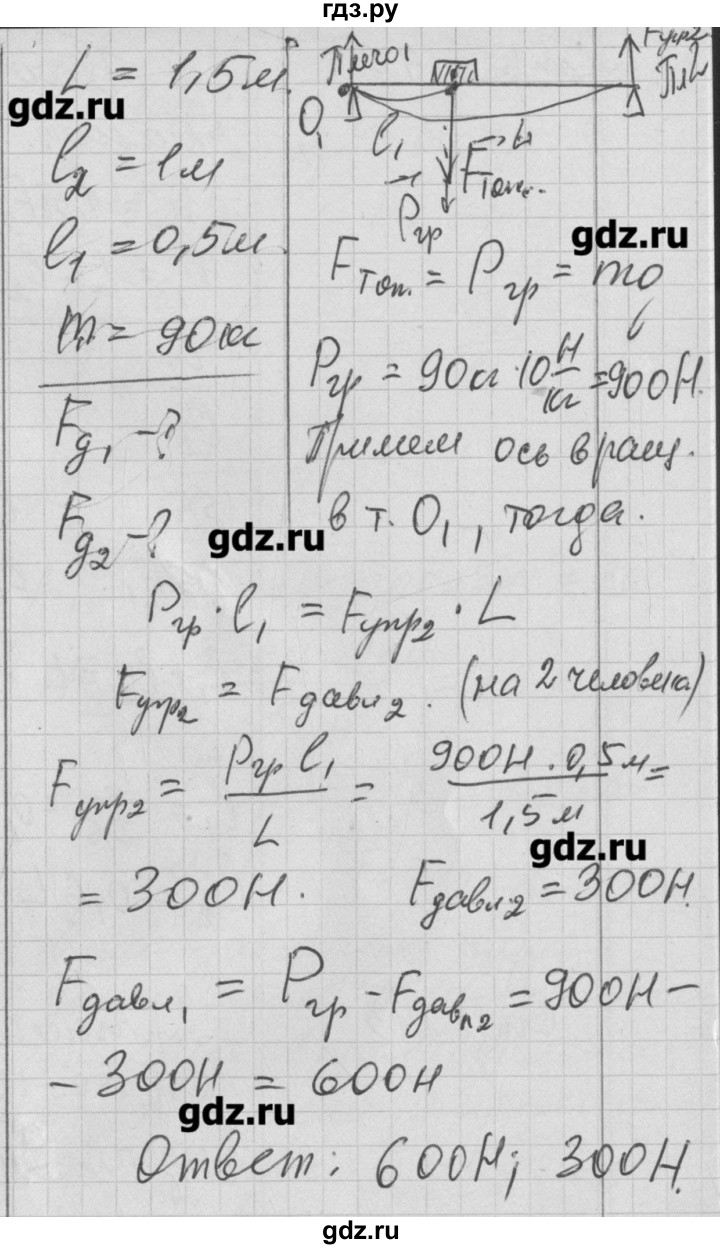 гдз.ру
L = 1,5м.
gdz.ru
l₂ = 1м
l₁ = 0,5м.
m = 90кг
F_д₁ - ?
F_д₂ - ?
Плечо1
F_упр2
O₁
l₁
F_топ.
P_гр
gdz.ru
F_топ. = P_гр = mg
P_гр = 90кг · 10 Н/кг = 900Н.
Примем ось вращ.
в т. O₁, тогда.
gdz.ru
P_гр · l₁ = F_упр2 · L
F_упр2 = F_давл2. (на 2 человека)
F_упр2 = P_гр l₁ / L = 900Н · 0,5м / 1,5м =
gdz.ru
= 300Н. F_давл2 = 300Н.
F_давл₁ = P_гр - F_давл2 = 900Н -
- 300Н = 600Н
gdz.ru
Ответ: 600Н; 300Н.
gdz.ru